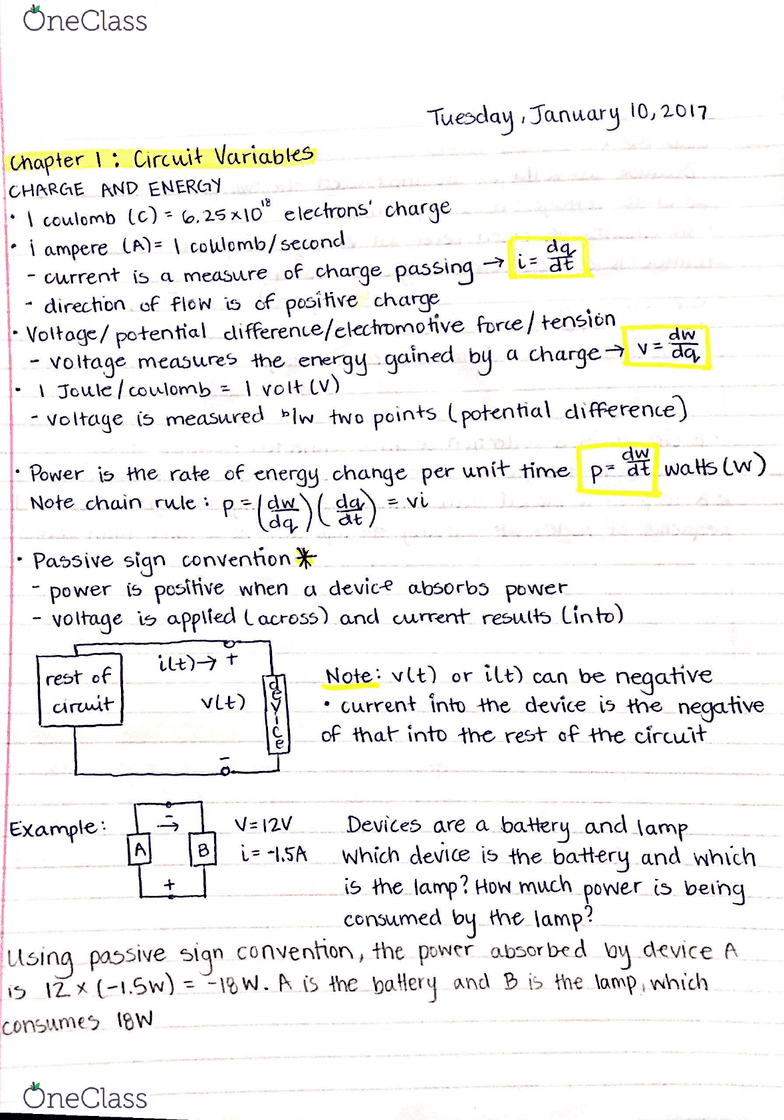 OneClass
Tuesday, January 10, 2017
Chapter 1: Circuit Variables
CHARGE AND ENERGY
• 1 coulomb (C) = 6.25×10¹⁸ electrons' charge
• 1 ampere (A) = 1 coulomb/second
- current is a measure of charge passing → i = dq/dt
- direction of flow is of positive charge
• Voltage/potential difference/electromotive force/tension
- voltage measures the energy gained by a charge → v = dw/dq
• 1 Joule/coulomb = 1 volt (V)
- voltage is measured b/w two points (potential difference)
• Power is the rate of energy change per unit time p = dw/dt watts (W)
Note chain rule: p = (dw/dq)(dq/dt) = vi
• Passive sign convention *
- power is positive when a device absorbs power
- voltage is applied (across) and current results (into)
rest of
circuit
i(t) → +
v(t)
device
-
Note: v(t) or i(t) can be negative
• current into the device is the negative
of that into the rest of the circuit
Example:
- →
A
B
+
V=12V
i=-1.5A
Devices are a battery and lamp
which device is the battery and which
is the lamp? How much power is being
consumed by the lamp?
Using passive sign convention, the power absorbed by device A
is 12 × (-1.5W) = -18W. A is the battery and B is the lamp, which
consumes 18W
OneClass